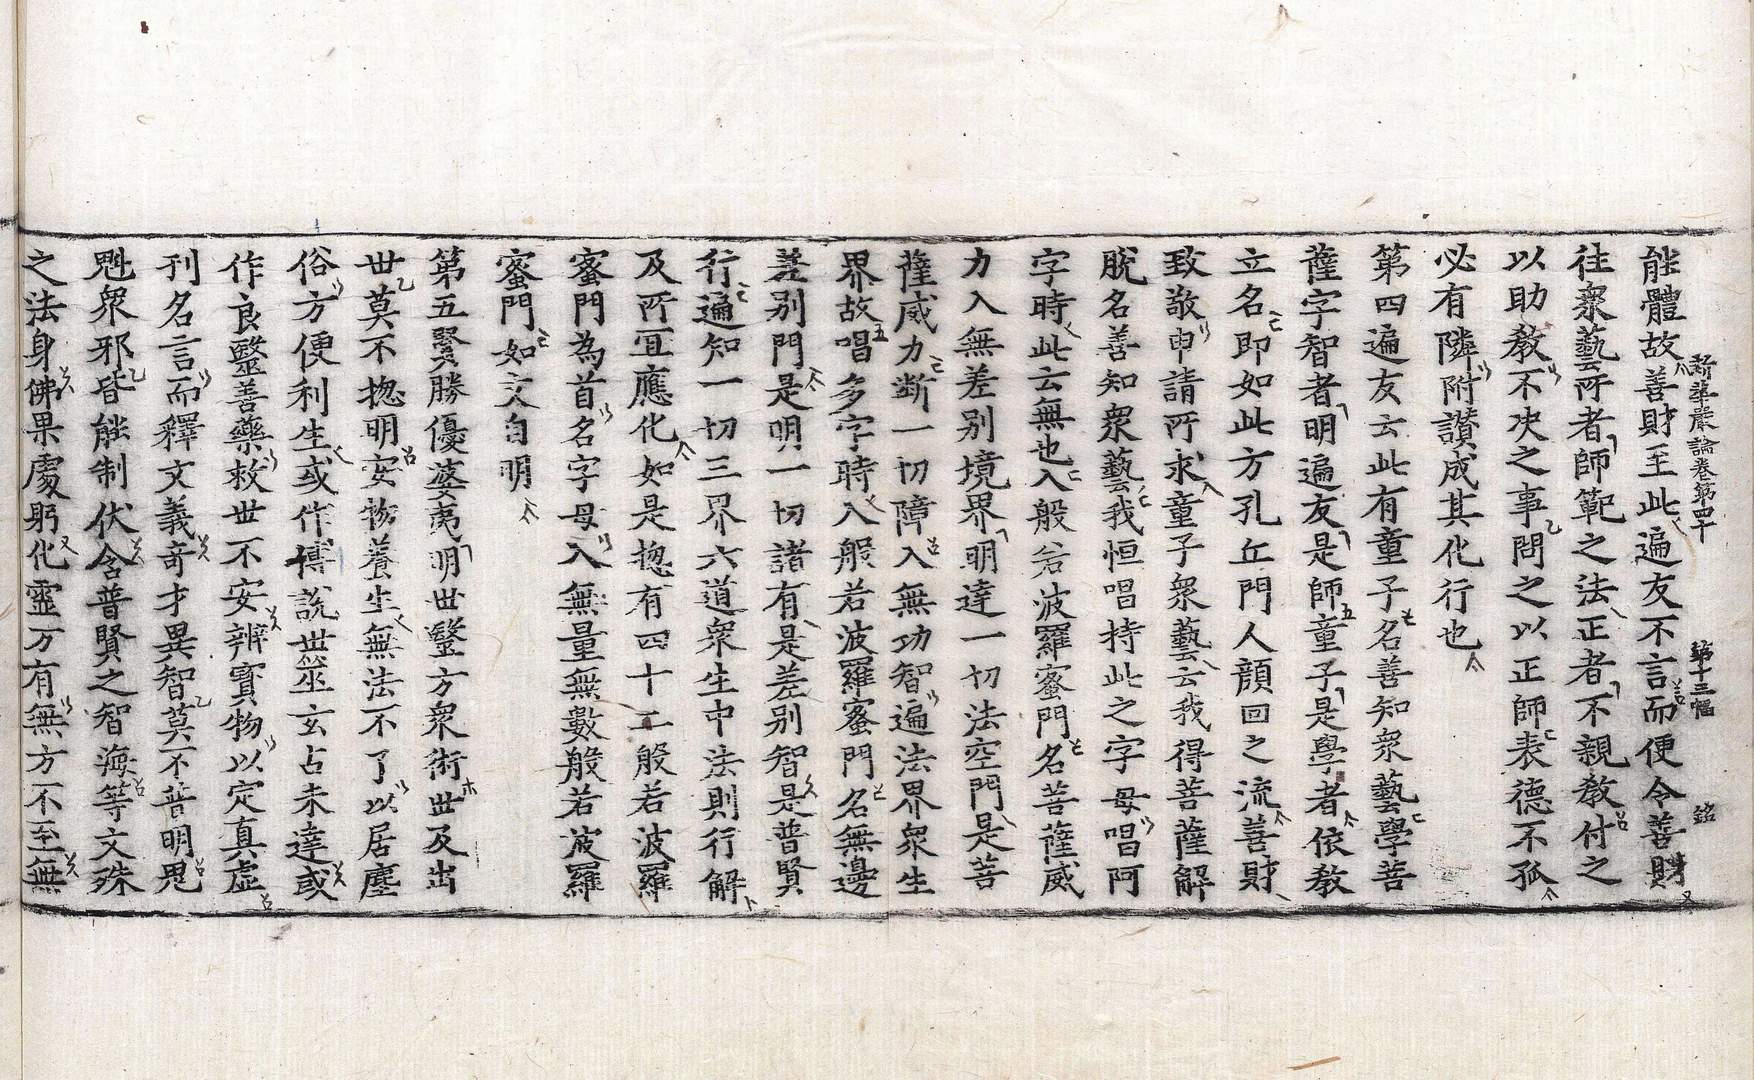 能體故善財至此遍友不言而便令善財
新華嚴論卷第四十 第十三幅 銘
往衆藝所者師範之法正者不親教付之
以助教不决之事問之以正師表德不孤
必有隣附讃成其化行也
第四遍友云此有童子名善知衆藝學菩
薩字智者明遍友是師童子是學者依教
立名即如此方孔丘門人顔回之流善財
致敬申請所求童子衆藝云我得菩薩解
脫名善知衆藝我恒唱持此之字母唱阿
字時此云無也入般若波羅蜜門名菩薩威
力入無差别境界明達一切法空門是菩
薩威力斷一切障入無功智遍法界衆生
界故唱多字時入般若波羅蜜門名無邊
差别門是明一切諸有是差别智是普賢
行遍知一切三界六道衆生中法則行解
及所宜應化如是揔有四十二般若波羅
蜜門為首名字母入無量無數般若波羅
蜜門如文自明
第五賢勝優婆夷明世毉方衆術世及出
世莫不揔明安物養生無法不了以居塵
俗方便利生或作博說世筮玄占未達或
作良毉善藥救世不安辨寳物以定真虚
刊名言而釋文義奇才異智莫不普明鬼
魁衆邪皆能制伏含普賢之智海等文殊
之法身佛果處躬化靈万有無方不至無